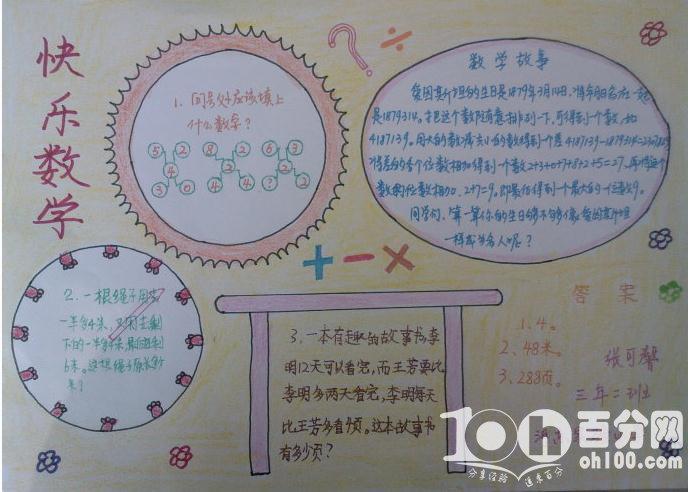 快乐数学
1. 问号处应该填上
什么数字?
5 2 8 2 6 3
4 2 2
3 0 4 4 ? 2
数学故事
爱因斯坦的生日是1879年3月14日,
是1879314,把这个数随意排列一下,可得到一个数,如
4187139。用大的数减去小的数得到一个差4187139-1879314=2307825
将差的各个位数相加得到一个数2+3+0+7+8+2+5=27。再将这个
数的位数相加,2+7=9。即最后得到一个最大的一位数9。
同学们,算一算你的生日够不够像爱因斯坦
一样成为名人呢?
2. 一根绳子用去
一半多4米,
6米。这根绳子原长多少
米?
3. 一本有趣的故事书,李
明12天可以看完,而王芳要比
李明多两天看完,李明每天
比王芳多看
有多少页?
答案
1. 4。
2. 48米。
3. 288页。
张可馨
三年二班
10h百分网
分享经验 追求百分
oh100.com